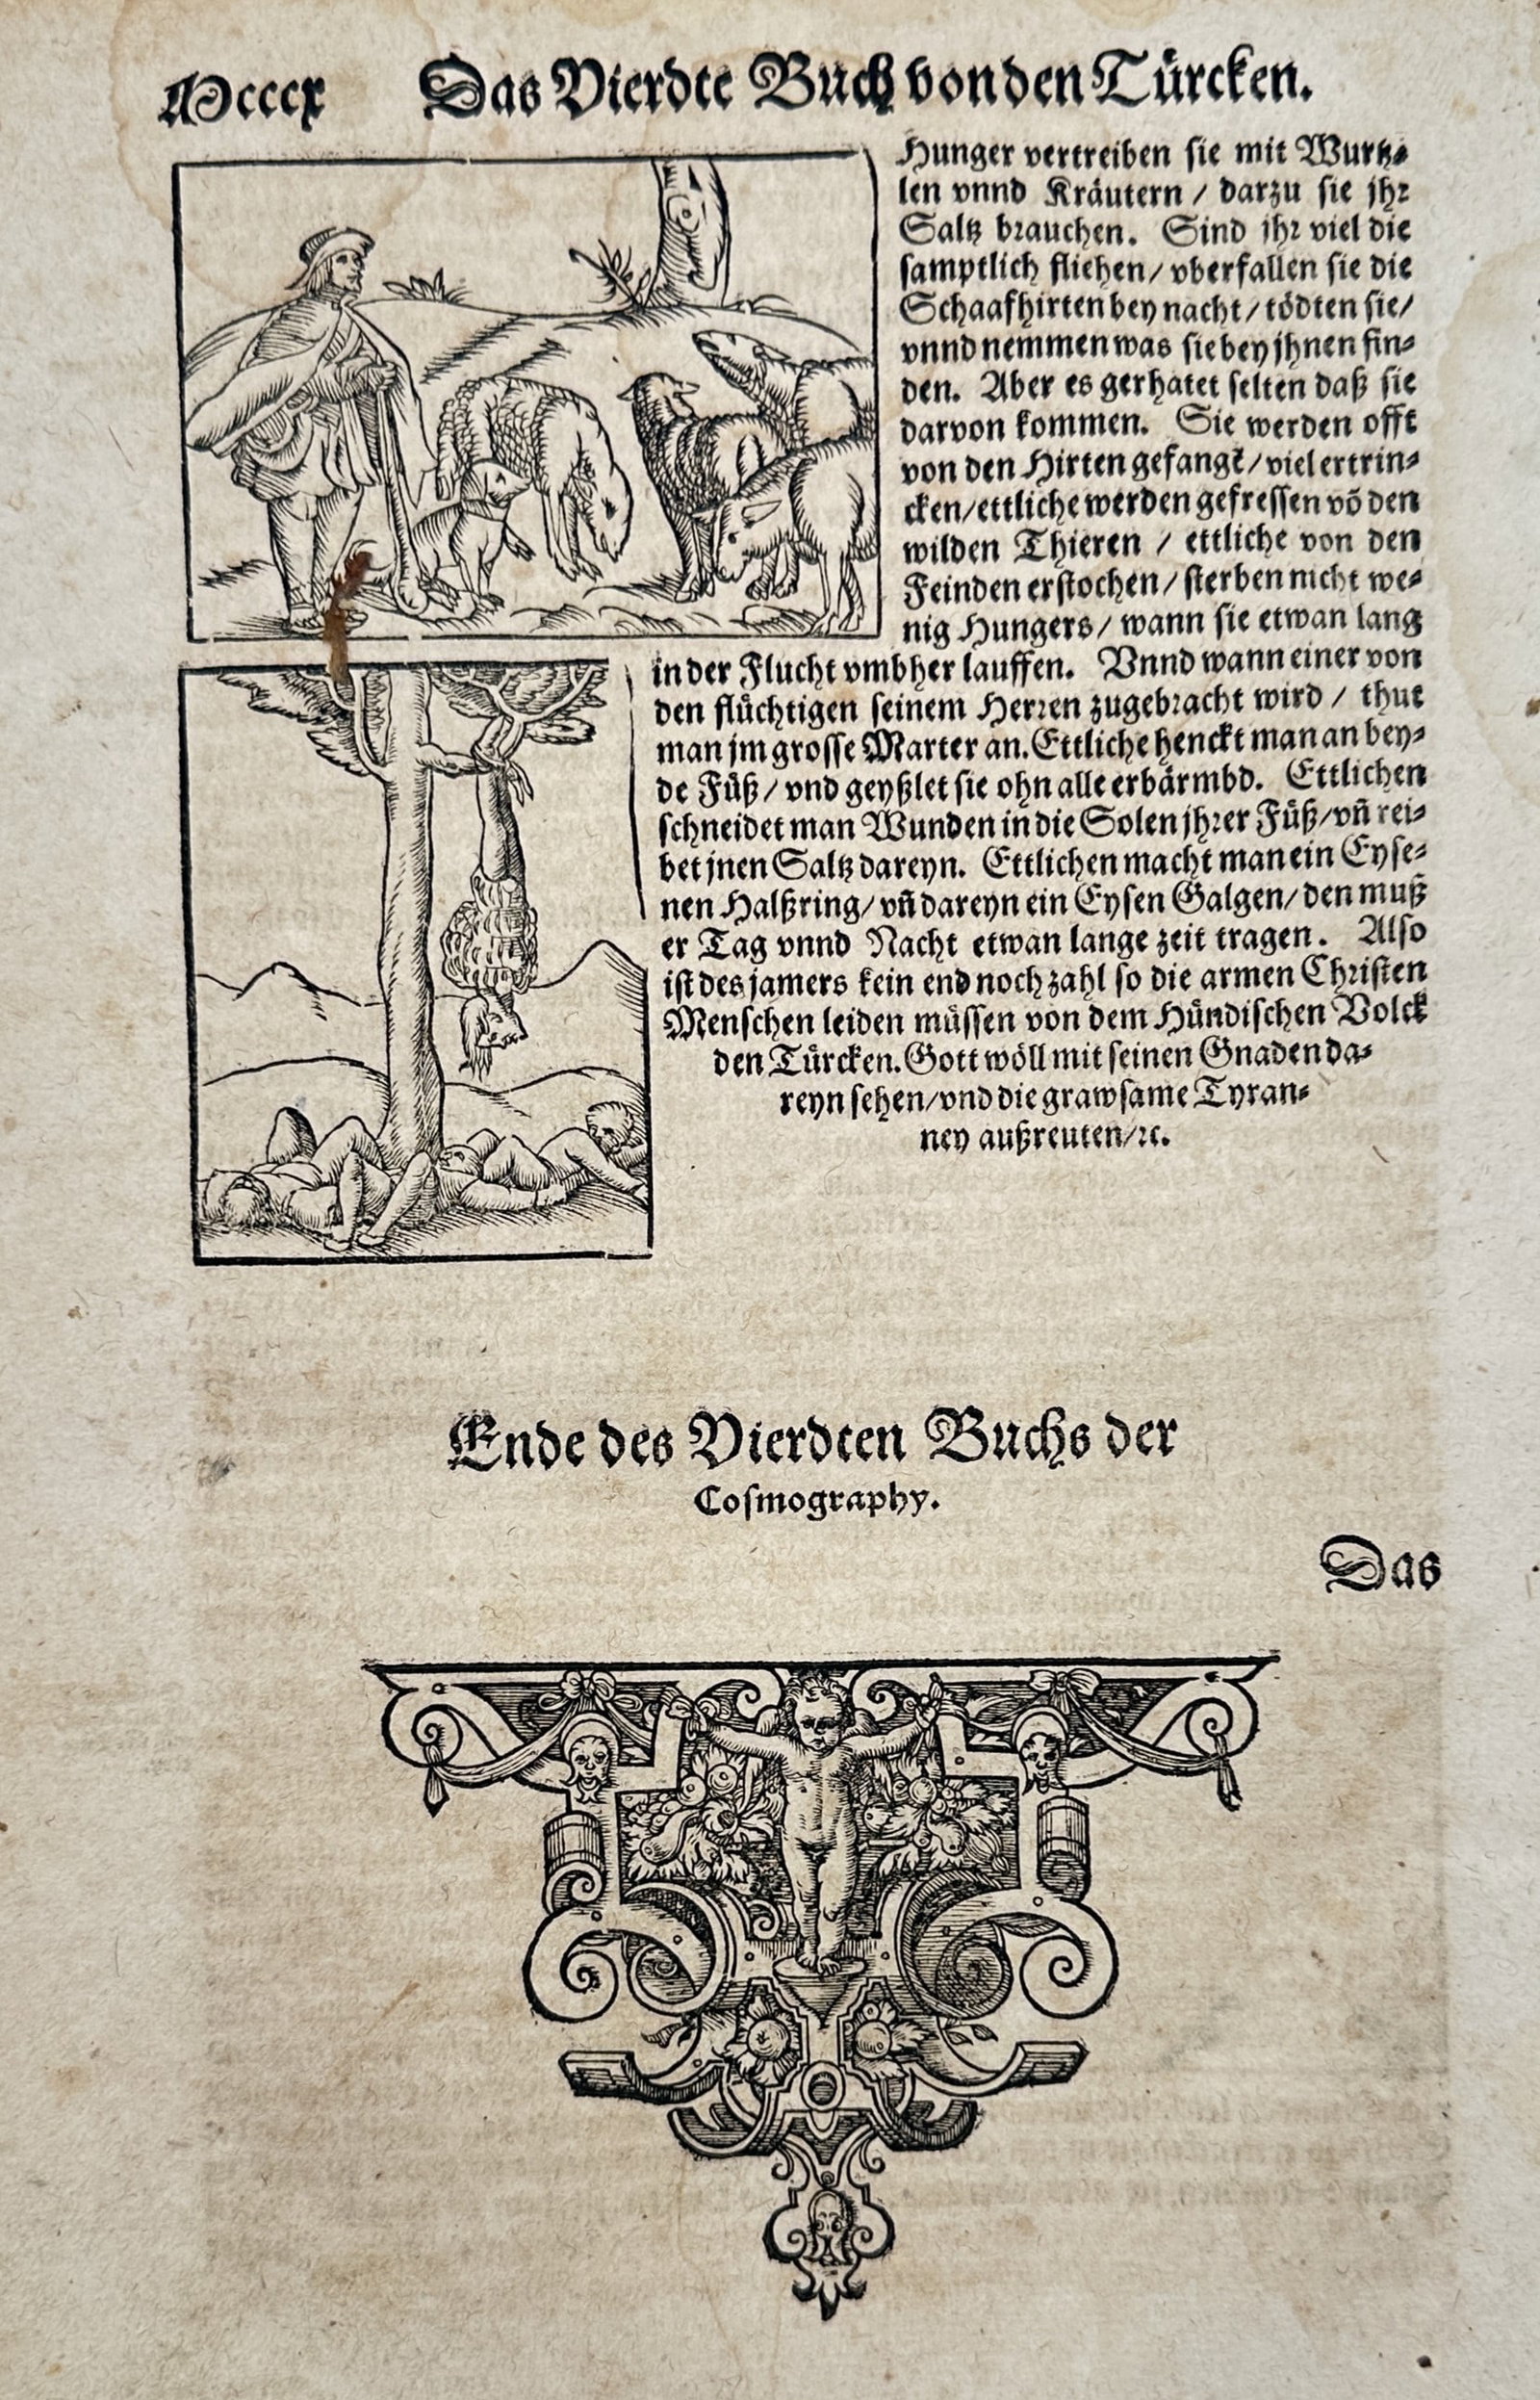 Mcccx
Das Vierdte Buch von den Türcken.
Hunger vertreiben sie mit Wurtz-
len vnnd Kräutern / darzu sie jhr
Saltz brauchen. Sind jhr viel die
samptlich fliehen / vberfallen sie die
Schaafhirten bey nacht / tödten sie /
vnnd nemmen was sie bey jhnen fin-
den. Aber es gerhatet selten daß sie
darvon kommen. Sie werden offt
von den Hirten gefangē / viel ertrin-
cken / ettliche werden gefressen vō den
wilden Thieren / ettliche von den
Feinden erstochen / sterben nicht we-
nig Hungers / wann sie etwan lang
in der Flucht vmbher lauffen. Vnnd wann einer von
den flüchtigen seinem Herren zugebracht wird / thut
man jm grosse Marter an. Ettliche henckt man an bey-
de Füß / vnd geyßlet sie ohn alle erbärmbd. Ettlichen
schneidet man Wunden in die Solen jhrer Füß / vñ rei-
bet jnen Saltz dareyn. Ettlichen macht man ein Eyse-
nen Halßring / vñ dareyn ein Eysen Galgen / den muß
er Tag vnnd Nacht etwan lange zeit tragen. Also
ist des jamers kein end noch zahl so die armen Christen
Menschen leiden müssen von dem Hündischen Volck
den Türcken. Gott wöll mit seinen Gnaden da-
reyn sehen / vnd die grawsame Tyran-
ney außreuten / ꝛc.
Ende des Vierdten Buchs der
Cosmography.
Das